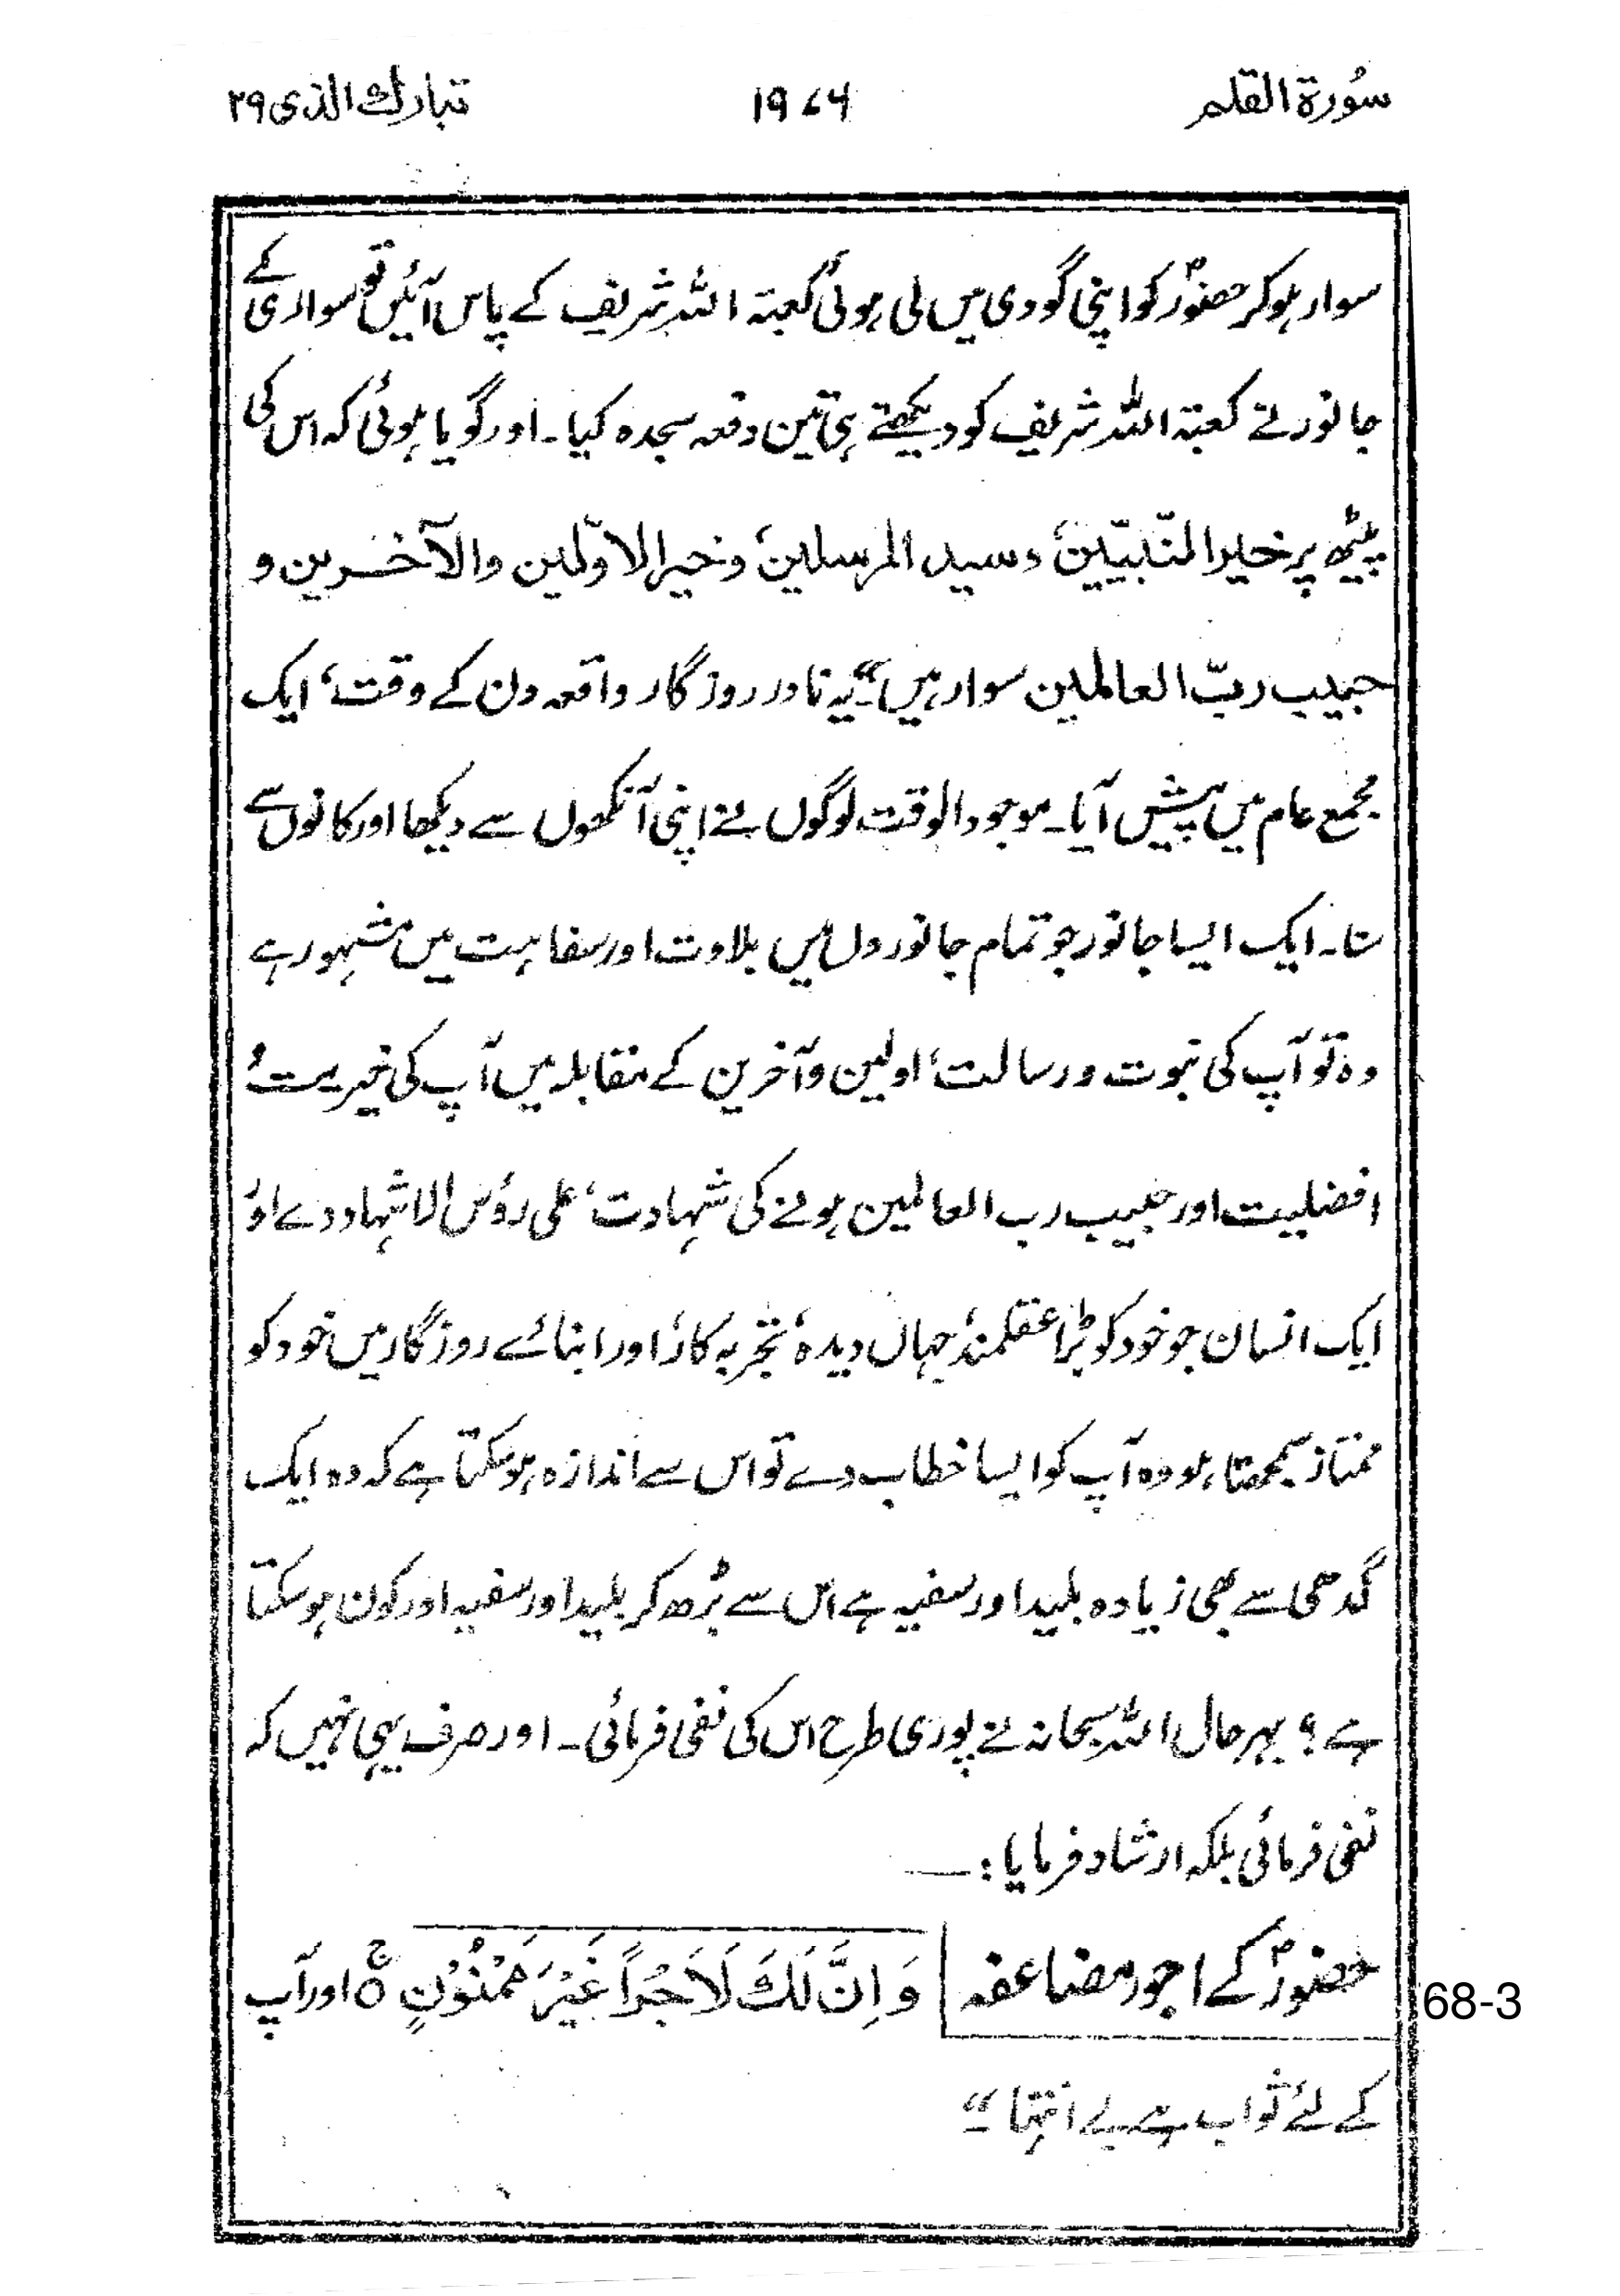 سُورۃ القلم
۱۹۷۶
تبارك الذی ۲۹
سوار ہو کر حضورؐ کو اپنی گودی میں لی ہوئی کعبتہ اللہ شریف کے پاس آئیں تو سواری کے
جانور نے کعبتہ اللہ شریف کو دیکھتے ہی تین دفعہ سجدہ کیا۔ اور گویا ہوئی کہ اس کی
پیٹھ پر خیر النّبیّین، وسید المرسلین، وخیر الاوّلین والآخرین و
حبیب ربّ العالمین سوار ہیں“۔ یہ نادر روزگار واقعہ دن کے وقت، ایک
مجمع عام میں پیش آیا۔ موجود الوقت لوگوں نے اپنی آنکھوں سے دیکھا اور کانوں سے
سنا۔ ایک ایسا جانور جو تمام جانوروں میں بلادت اور سفاہت میں مشہور ہے
وہ تو آپ کی نبوت ورسالت، اولین وآخرین کے مقابلہ میں آپ کی خیریت،
افضلیت اور حبیب رب العالمین ہونے کی شہادت، علی رؤس الاشہاد دے اور
ایک انسان جو خود کو بڑا عقلمند، جہاں دیدہ، تجربہ کار، اور ابنائے روزگار میں خود کو
ممتاز سمجھتا ہو وہ آپ کو ایسا خطاب دے تو اس سے اندازہ ہو سکتا ہے کہ وہ ایک
گدھی سے بھی زیادہ بلید اور سفیہ ہے اس سے بڑھ کر بلید اور سفیہ اور کون ہو سکتا
ہے؟ بہر حال اللہ سبحانہ نے پوری طرح اس کی نفی فرمائی۔ اور صرف یہی نہیں کہ
نفی فرمائی بلکہ ارشاد فرمایا:—
حضورؐ کے اجور مضاعفہ وَاِنَّ لَكَ لَاَجْرًا غَيْرَ مَمْنُوْنٍ ۚ○ اور آپ
68-3
کے لئے ثواب ہے بے انتہا“۔